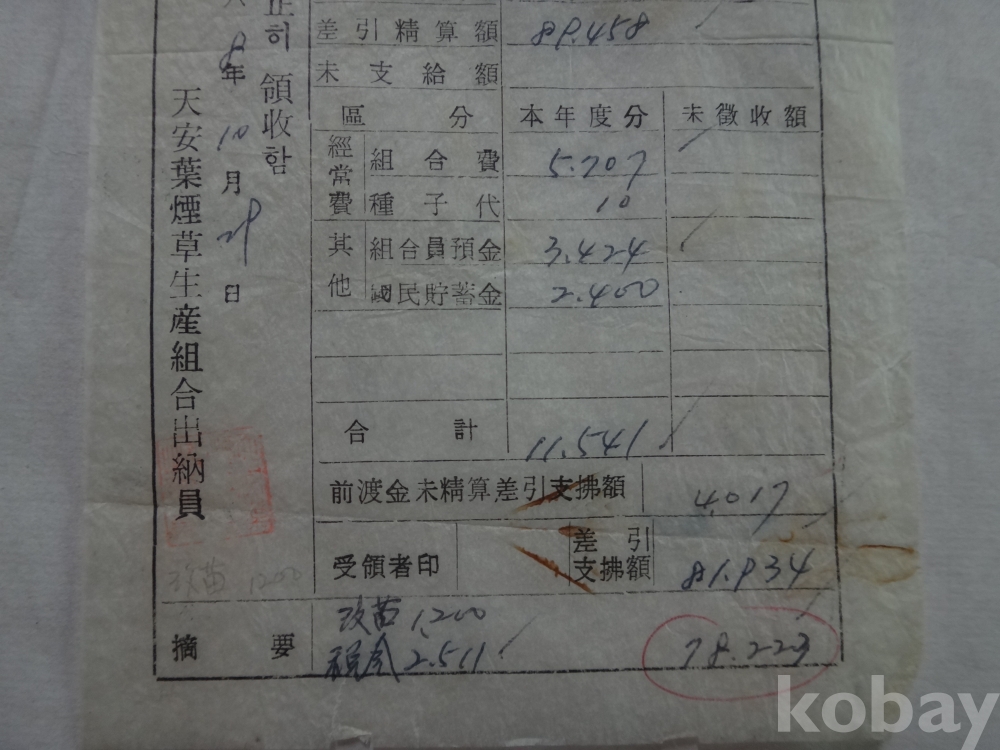 差引精算額 89.458
未支給額
區分 本年度分 未徵收額
經常費 組合費 5.707
種子代 10
其他 組合員預金 3.424
國民貯蓄金 2.400
合計 11.541
前渡金未精算差引支拂額 4.017
受領者印 差引支拂額 81.934
摘要 改苗 1.200
税金 2.511
78.223
正히 領收함
8年 10月 29日
天安葉煙草生産組合出納員
改苗 1200
kobay